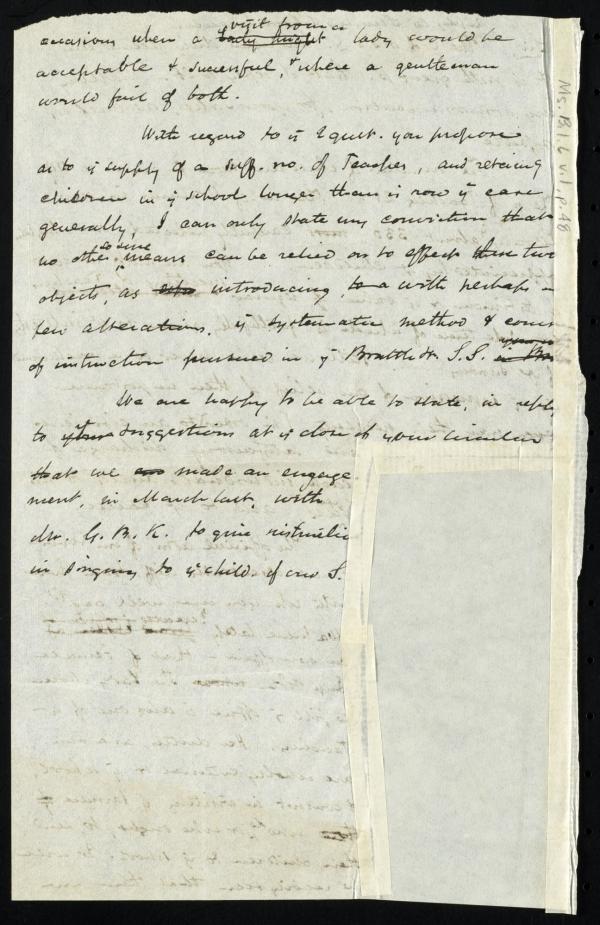 visit from a
occasions when a lady might lady would be
acceptable & successful, & where a gentleman
would fail of both.
With regard to yͤ 2 quest. you propose
as to yͤ supply of a suff. no. of Teachers, and retaining
children in yͤ school longer than is now yͤ case
generally, I can only state my conviction that
so sure
no other means can be relied on to effect these two
objects, as introducing, to a with perhaps a
few alterations, yͤ systematic method &
of instruction pursued in yͤ Brattle St. S. S. in
We are happy to be able to state, in reply
to suggestions at yͤ close of your circular
that we made an engage
ment, in March last, with
Mr. G. B. K. to give
in singing to yͤ child. of our S.
Ms. B. 1. 6 v. 1, p. 48